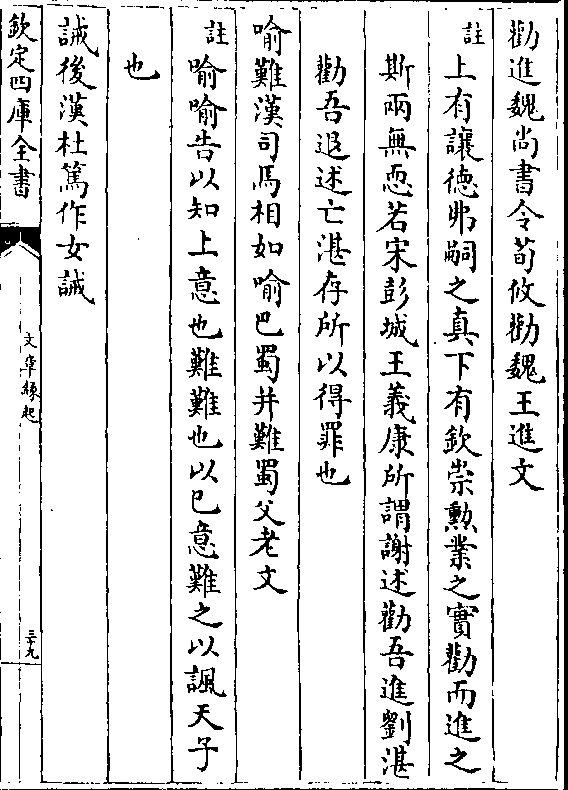 勸進魏尚書令荀攸勸魏王進文
註上有讓德弗嗣之真下有欽崇勲業之實勸而進之
斯兩無恧若宋彭城王義康所謂謝述勸吾進劉湛
勸吾退述亡湛存所以得罪也
喻難漢司馬相如喻巴蜀并難蜀父老文
註喻喻告以知上意也難難也以已意難之以諷天子
也
誡後漢杜篤作女誡
欽定四庫全書
文章緣起
三十九